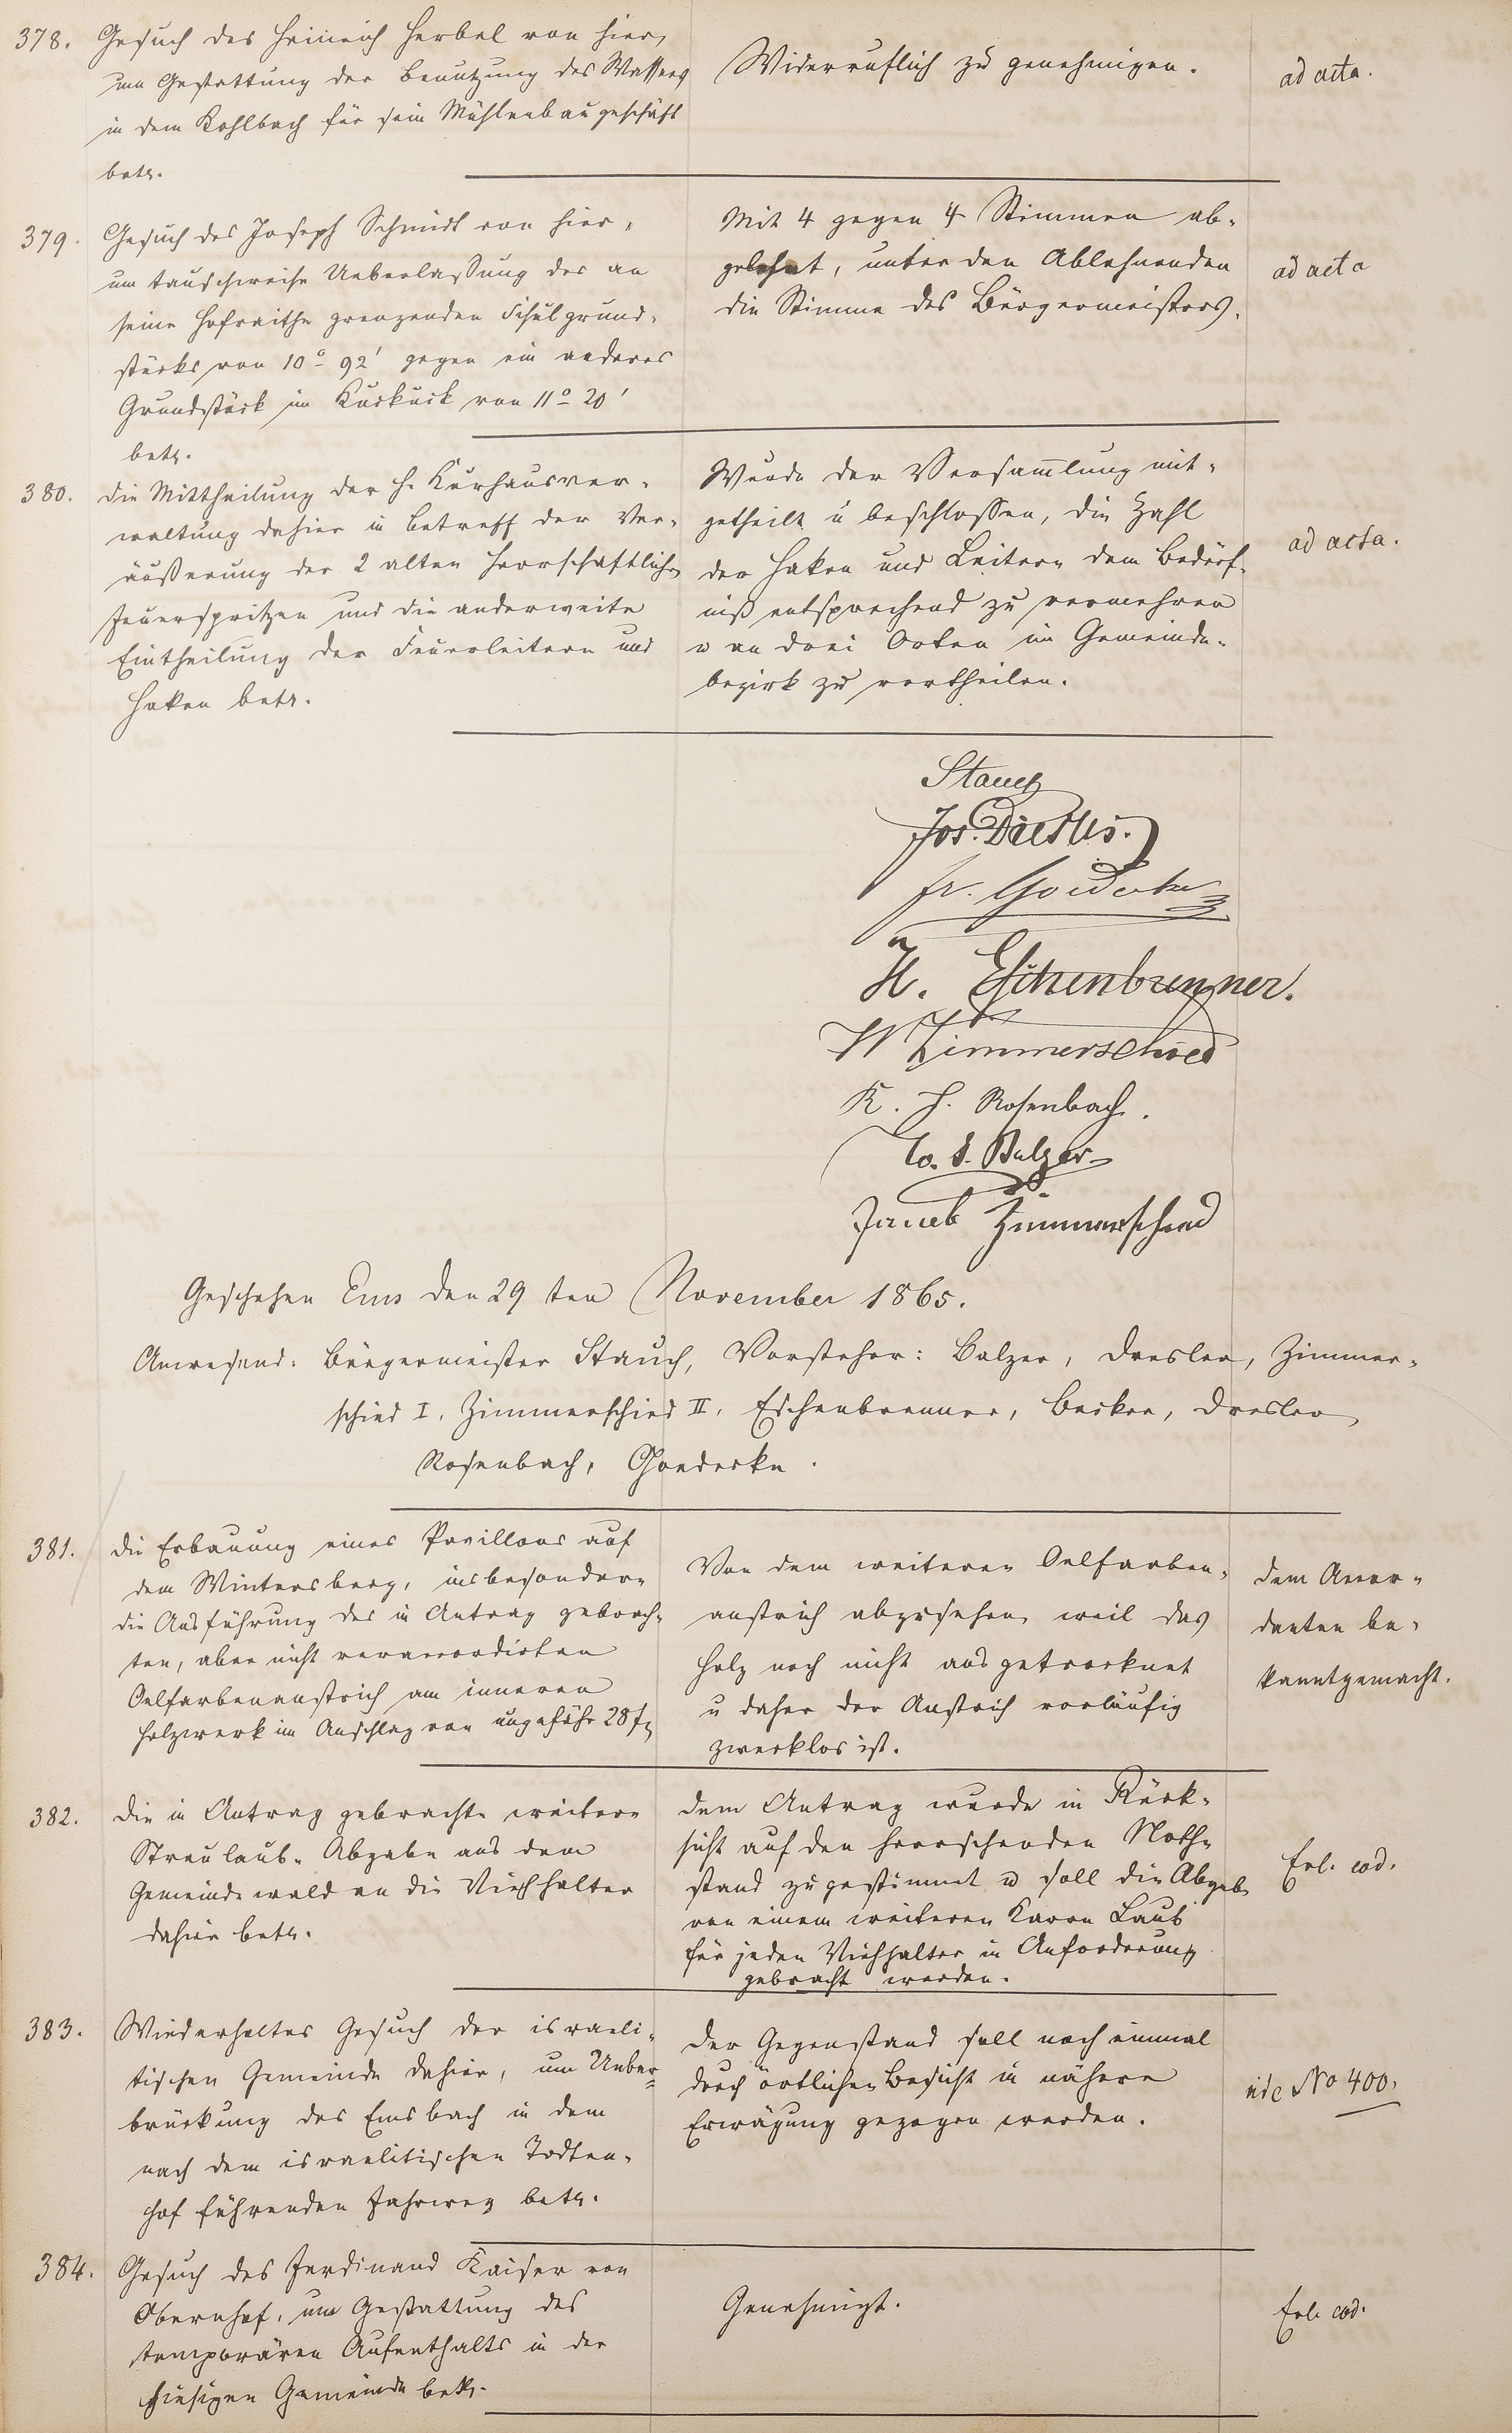 378.
Gesuch des Heinrich Herbel von hier,
um Gestattung der Benutzung des Wassers
in dem Kohlbach für sein Mühlenbaugeschäft
betr.
Widerruflich zu genehmigen.
ad acta.
379.
Gesuch des Joseph Schmidt von hier,
um tauschweise Ueberlassung des an
seine Hofraithe grenzenden Schulgrund-
stücks von 10° 92' gegen ein anderes
Grundstück im Kuckuck von 11° 20'
betr.
Mit 4 gegen 4 Stimmen ab-
gelehnt, unter den Ablehnenden
die Stimme des Bürgermeisters.
ad acta
380.
Die Mittheilung der H. Kurhausver-
waltung dahier in Betreff der Ver-
äußerung der 2 alten herrschaftlichen
Feuerspritzen und die anderweite
Eintheilung der Feuerleitern und
Haken betr.
Wurde der Versam̅lung mit-
getheilt u beschlossen, die Zahl
der Haken und Leitern dem Bedürf-
niß entsprechend zu vermehren
u an drei Orten im Gemeinde-
bezirk zu vertheilen.
ad acta.
Stauch
Jos.
Fr. Goedecke
H. Eschenbrenner.
W Zimmerschied
K. H. Rosenbach.
Balzer
Jacob Zimmerschied
Geschehen Ems den 29ten November 1865.
Anwesend: Bürgermeister Stauch, Vorsteher: Balzer, Dresler, Zimmer-
schied I, Zimmerschied II, Eschenbrenner, Becker, Dresler,
Rosenbach, Goedecke.
381.
Die Erbauung eines Pavillons auf
dem Wintersberg, insbesondere
die Ausführung des in Antrag gebrach-
ten, aber nicht veraccordirten
Oelfarbenanstrich am inneren
Holzwerk im Anschlag von ungefähr 28 f
Von dem weiteren Oelfarben-
anstrich abzusehen, weil das
Holz noch nicht ausgetrocknet
u daher der Anstrich vorläufig
zwecklos ist.
Dem Accor-
danten be-
kanntgemacht.
382.
Die in Antrag gebrachte weitere
Streulaub-Abgabe aus dem
Gemeindewald an die Viehhalter
dahier betr.
Dem Antrag wurde in Rück-
sicht auf den herrschenden Noth-
stand zugestimmt u soll die Abgabe
von einem weiteren Karrn Laub
für jeden Viehhalter in Anforderung
gebracht werden.
Erl. eod.
383.
Wiederholtes Gesuch der israeli-
tischen Gemeinde dahier, um Ueber-
brückung des Emsbach in dem
nach dem israelitischen Todten-
hof führenden Fahrweg betr.
Der Gegenstand soll noch einmal
durch örtlichen Besicht in nähere
Erwägung gezogen werden.
vide No 400.
384.
Gesuch des Ferdinand Kaiser von
Obernhof, um Gestattung des
temporären Aufenthalts in der
hiesigen Gemeinde betr.
Genehmigt.
Erl. eod.